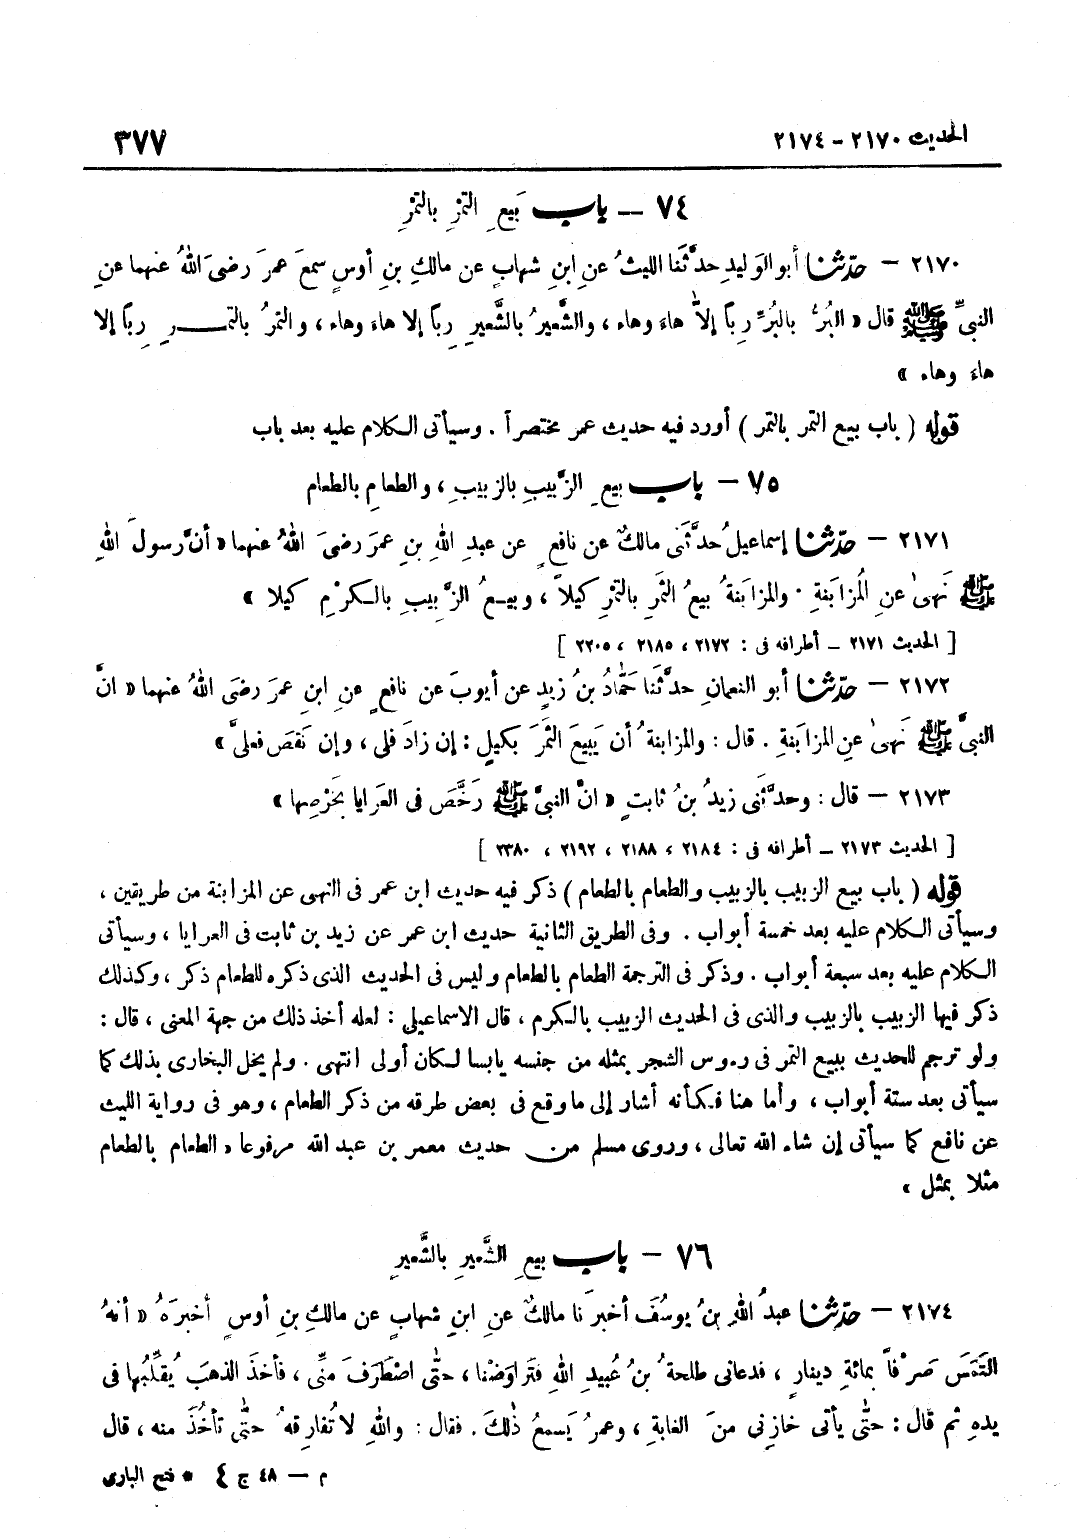 الحديث ٢١٧٠ - ٢١٧٤ ٣٧٧
٧٤ — باب بَيعِ التمْرِ بالتمْرِ
٢١٧٠ — حدّثنا أبو الوَليدِ حدَّثَنا الليثُ عنِ ابنِ شهابٍ عن مالكِ بنِ أوسٍ سمعَ عمرَ رضىَ اللهُ عنهما عنِ
النبىِّ ﷺ قال « البُرُّ بالبُرِّ رِباً إلاَّ هاءَ وهاء ، والشَّعيرُ بالشَّعيرِ رِباً إلا هاءَ وهاء ، والتمرُ بالتمـــرِ رِباً إلا
هاءَ وهاء »
قوله ( باب بيع التمر بالتمر ) أورد فيه حديث عمر مختصرآ . وسيأتى الكلام عليه بعد باب
٧٥ — باب بيعِ الزَّبيبِ بالزبيبِ ، والطعامِ بالطعام
٢١٧١ — حدّثنا إسماعيلُ حدَّثَنى مالكٌ عن نافعٍ عن عبدِ اللهِ بنِ عمرَ رضىَ اللهُ عنهما « أنَّ رسولَ اللهِ
ﷺ نَهىٰ عنِ المُزابَنةِ . والمزابَنةُ بيعُ الثمَرِ بالتمْرِ كيلاً ، وبيـعُ الزَّبيبِ بالكرْمِ كيلا »
[ الحديث ٢١٧١ ـ أطرافه فى : ٢١٧٢ ، ٢١٨٥ ، ٢٢٠٥ ]
٢١٧٢ — حدّثنا أبو النعمانِ حدَّثَنا حَمّادُ بنُ زيدٍ عن أيوبَ عن نافعٍ عنِ ابنِ عمرَ رضىَ اللهُ عنهما « انَّ
النبىَّ ﷺ نَهىٰ عنِ المزابَنةِ . قال : والمزابنةُ أن يَبيعَ الثمَرَ بكيلٍ : إن زادَ فلى ، وإن نَقَصَ فعلىَّ »
٢١٧٣ — قال : وحدَّثَنى زيدُ بنُ ثابتٍ « انَّ النبىَّ ﷺ رَخَّصَ فى العَرايا بخَرْصِها »
[ الحديث ٢١٧٣ ـ أطرافه فى : ٢١٨٤ ، ٢١٨٨ ، ٢١٩٢ ، ٢٣٨٠ ]
قوله ( باب بيع الزبيب بالزبيب والطعام بالطعام ) ذكر فيه حديث ابن عمر فى النهى عن المزابنة من طريقين ،
وسيأتى الكلام عليه بعد خمسة أبواب . وفى الطريق الثانية حديث ابن عمر عن زيد بن ثابت فى العرايا ، وسيأتى
الكلام عليه بعد سبعة أبواب . وذكر فى الترجمة الطعام بالطعام وليس فى الحديث الذى ذكره للطعام ذكر ، وكذلك
ذكر فيها الزبيب بالزبيب والذى فى الحديث الزبيب بالكرم ، قال الاسماعيلى : لعله أخذ ذلك من جهة المعنى ، قال :
ولو ترجم للحديث ببيع التمر فى رءوس الشجر بمثله من جنسه يابسا لكان أولى انتهى . ولم يخل البخارى بذلك كما
سيأتى بعد ستة أبواب ، وأما هنا فكأنه أشار إلى ما وقع فى بعض طرقه من ذكر الطعام ، وهو فى رواية الليث
عن نافع كما سيأتى إن شاء الله تعالى ، وروى مسلم من حديث معمر بن عبد الله مرفوعا « الطعام بالطعام
مثلا بمثل »
٧٦ — باب بيعِ الشَّعيرِ بالشَّعيرِ
٢١٧٤ — حدّثنا عبدُ اللهِ بنُ يوسُفَ أخبرَنا مالكٌ عنِ ابنِ شهابٍ عن مالكِ بنِ أوسٍ أخبرَهُ « أنهُ
التَمَسَ صَرْفاً بمائةِ دينارٍ ، فدعانى طلحةُ بنُ عُبيدِ اللهِ فتَراوَضْنا ، حتّى اصْطَرَفَ منِّى ، فأخذَ الذهبَ يُقلِّبُها فى
يدهِ ثم قال : حتّى يأتى خازِنى منَ الغابةِ ، وعمرُ يَسمعُ ذٰلكَ . فقال : واللهِ لا تُفارِقهُ حتّى تأخُذَ منه ، قال
م — ٤٨ ج ٤ * فتح البارى